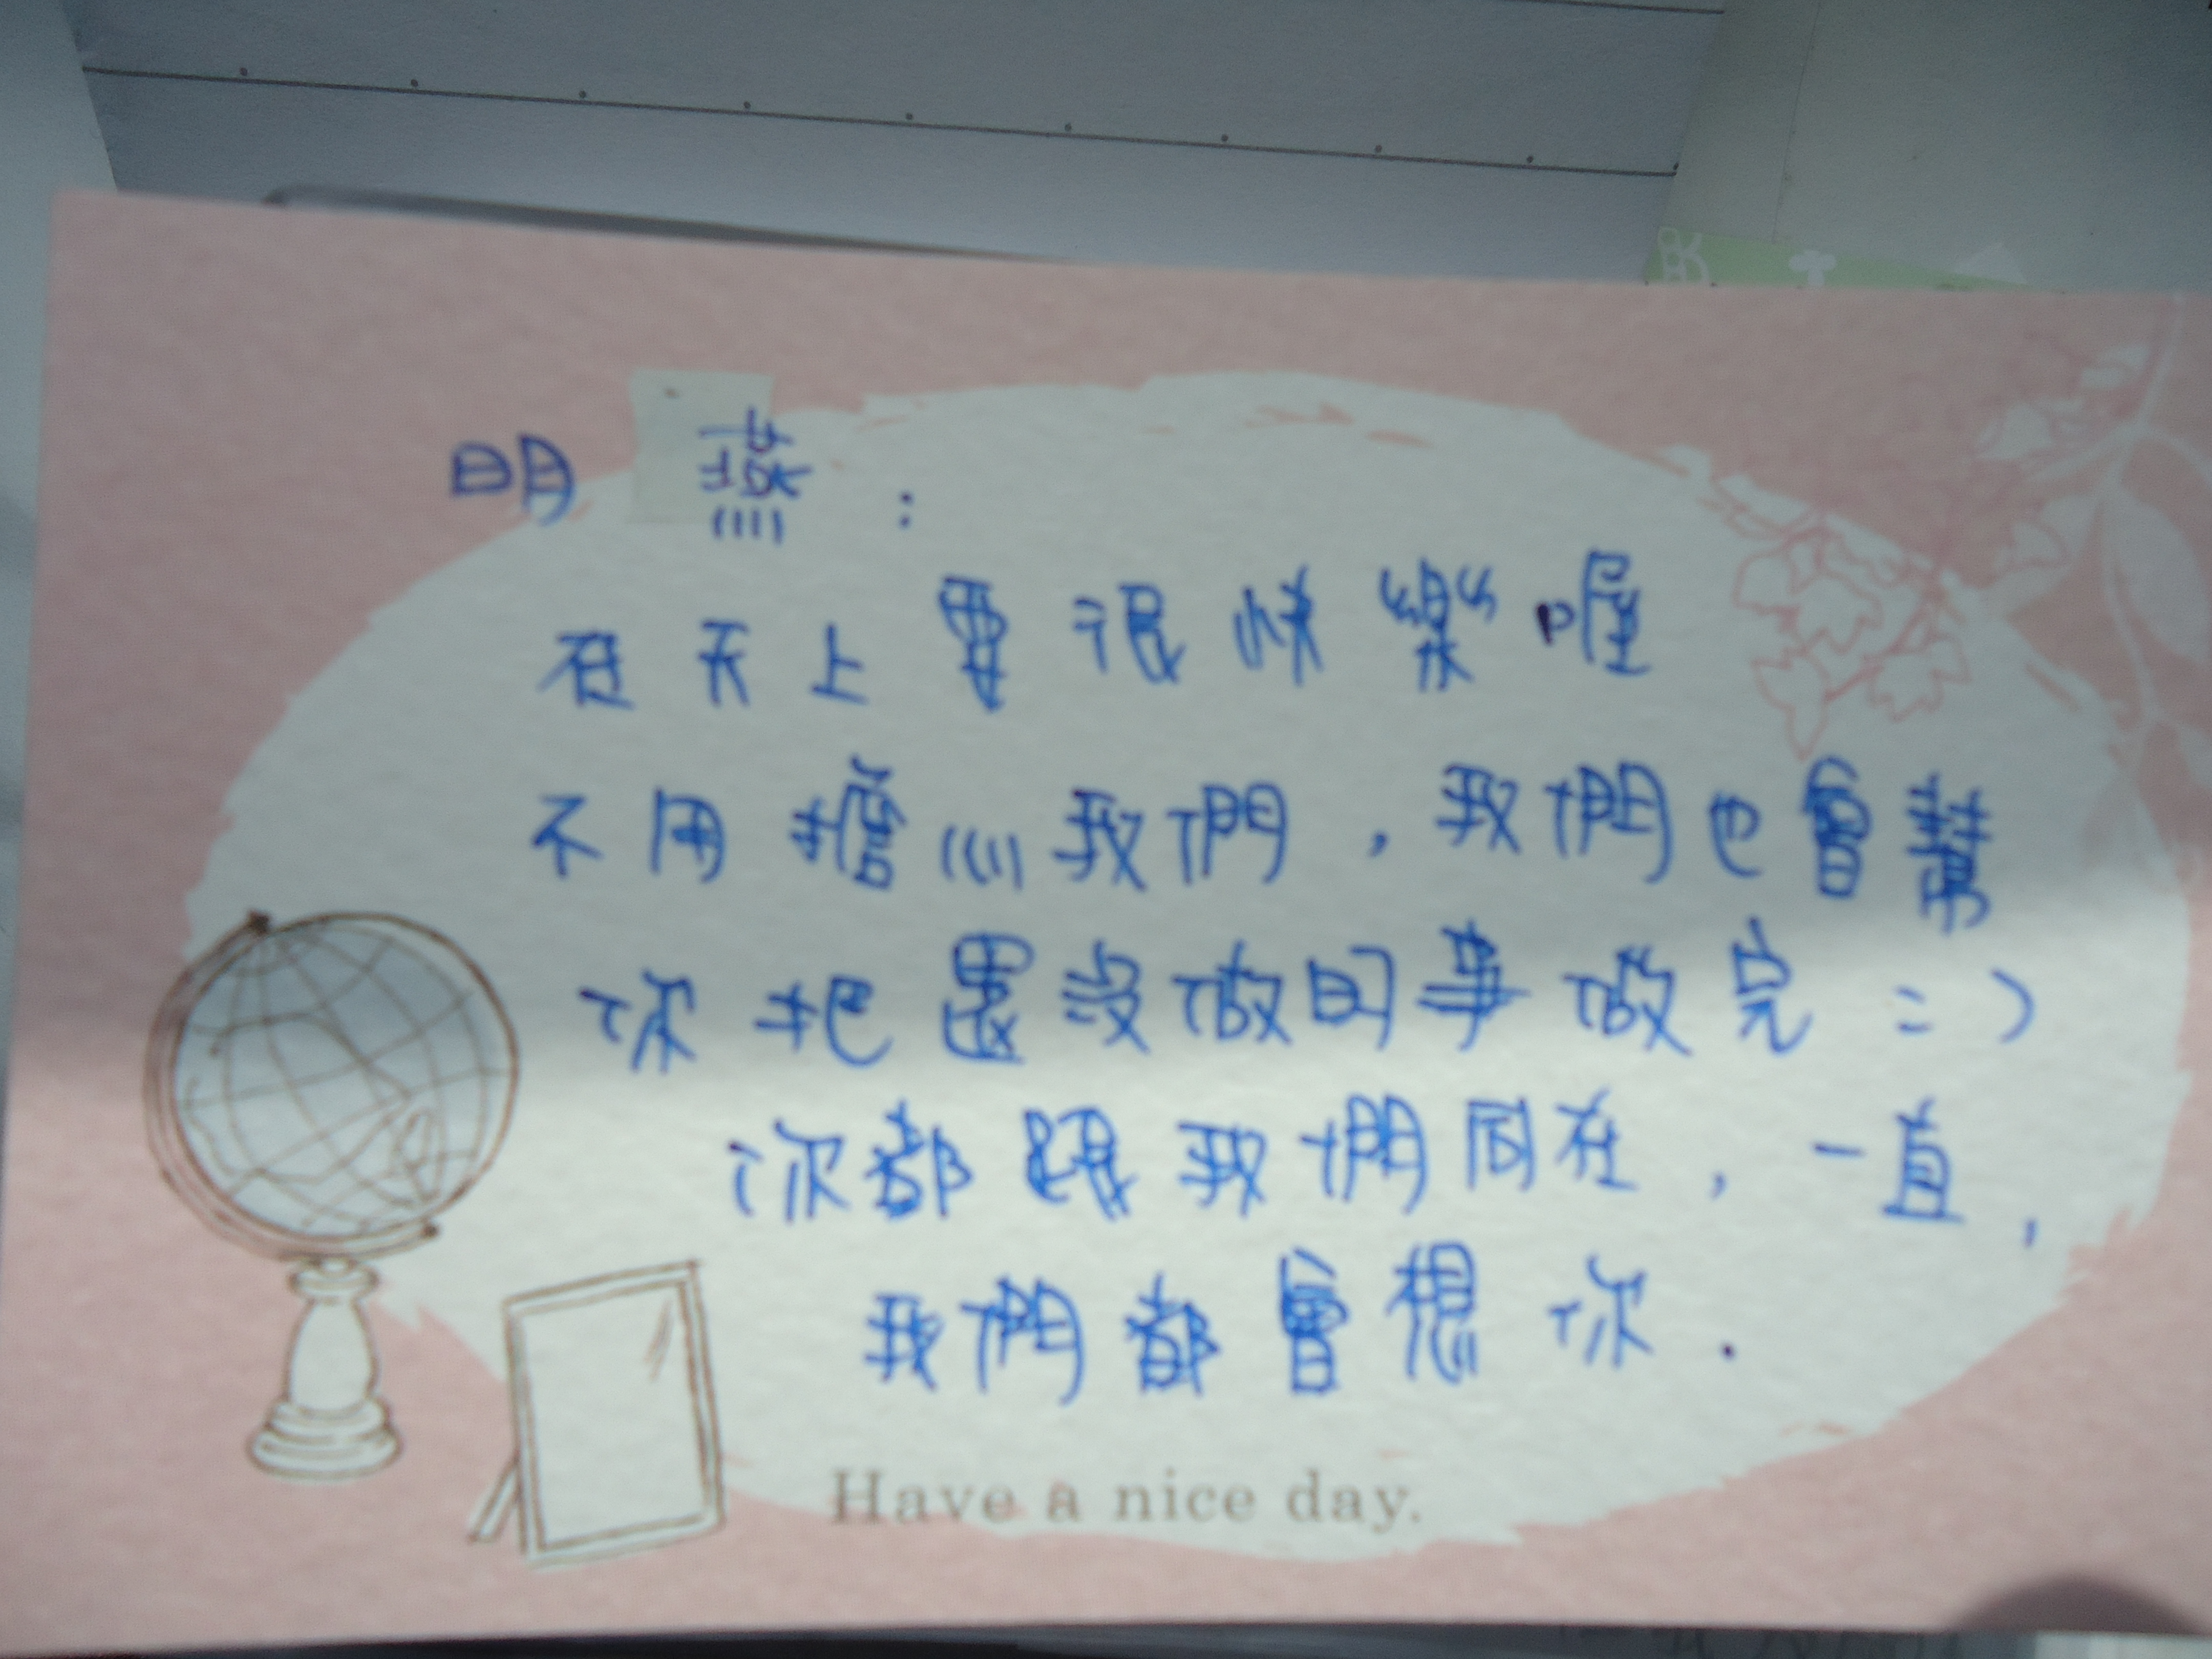 明燕：
在天上要很快樂喔
不用擔心我們，我們也會幫
你把還沒做的事做完 : )
你都跟我們同在，一直，
我們都會想你．
Have a nice day.